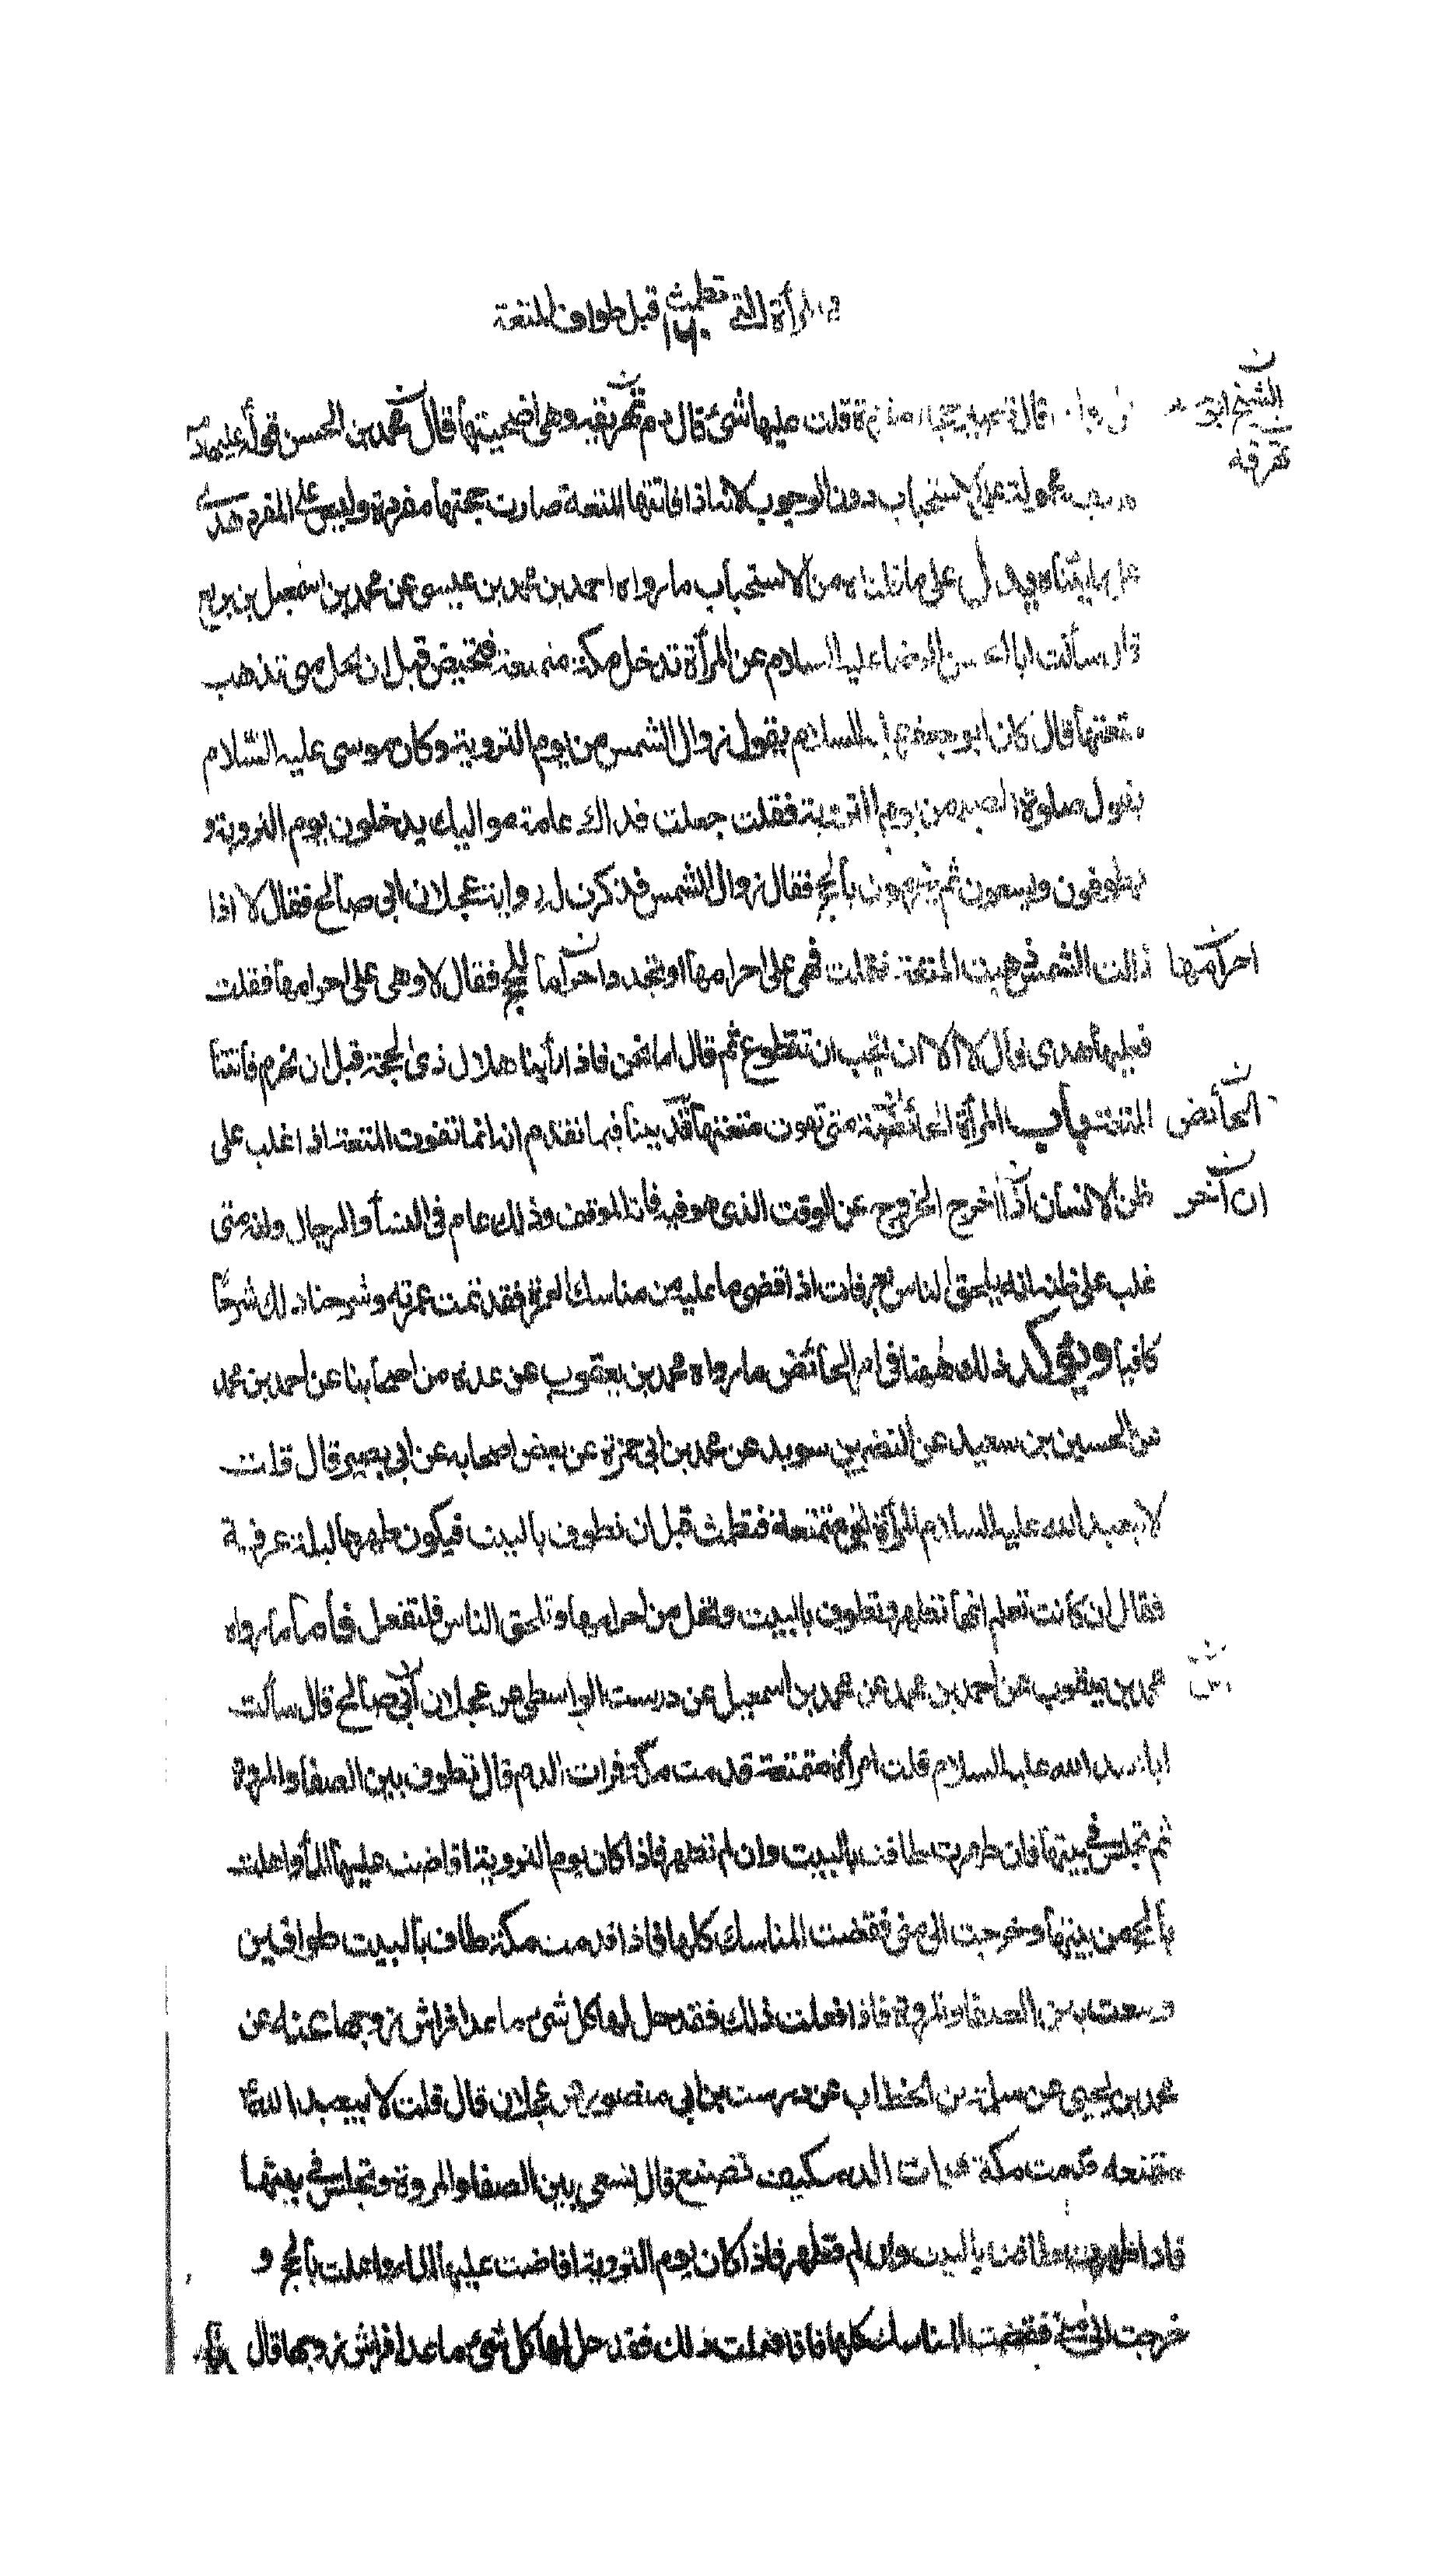 المرأة التي تطمث قبل طواف المتعة
١٧٠
الشيخ ابو
تهرقه
قال عليها حجة قلت عليها شئ قال دم تهريقه وهي اضحيتها قال محمد بن الحسن قوله عليها دم
على الاستحباب دون الوجوب لانه اذا فاتتها المتعة صارت حجتها مفردة وليس على المفرد هدى
على ما بيناه ويدل على ما قلناه من الاستحباب ما رواه احمد بن محمد بن عيسى عن محمد بن اسمعيل بن بزيع
قال سألت ابا الحسن الرضا عليه السلام عن المرأة تدخل مكة متمتعة فتحيض قبل ان تحل متى تذهب
متعتها قال كان ابو جعفر عليه السلام يقول زوال الشمس من يوم التروية وكان موسى عليه السلام
يقول صلوة الصبح من يوم التروية فقلت جعلت فداك عامة مواليك يدخلون يوم التروية و
يطوفون ويسعون ثم يحرمون بالحج فقال زوال الشمس فذكرت له رواية عجلان ابى صالح فقال لا اذا
زالت الشمس ذهبت المتعة فقلت فهي على احرامها او تجدد احراما للحج فقال لا وهي على احرامها فقلت
احرامها
فعليها هدى قال لا الا ان تحب ان تتطوع ثم قال اما نحن فاذا رأينا هلال ذى الحجة قبل ان نحرم فاتتنا
المتعة باب المرأة الحائض متى تفوت متعتها قد بينا فيما تقدم انه انما تفوت المتعة اذا غلب على
الحائض
ظن الانسان اذا اخر الخروج عن الوقت الذى هو فيه فاته الموقف وذلك عام فى النساء والرجال وانه متى
ان آخر
غلب على ظنه انه يلحق الناس بعرفات اذا قضى ما عليه من مناسك العمرة فقد تمت عمرته وشرحنا ذلك شرحا
كافيا ويؤكد ذلك ههنا فى امر الحائض ما رواه محمد بن يعقوب عن عدة من اصحابنا عن احمد بن محمد
عن الحسين بن سعيد عن النضر بن سويد عن محمد بن ابي حمزة عن بعض اصحابه عن ابي بصير قال قلت
لابيعبد الله عليه السلام المرأة تجئ متمتعة فتطمث قبل ان تطوف بالبيت فيكون طهرها ليلة عرفة
فقال ان كانت تعلم انها تطهر وتطوف بالبيت وتحل من احرامها وتلحق الناس فلتفعل فأما ما رواه
محمد بن يعقوب عن احمد بن محمد عن محمد بن اسمعيل عن درست الواسطى عن عجلان ابى صالح قال سألت
ابا عبد الله عليه السلام قلت امرأة متمتعة قدمت مكة فرات الدم قال تطوف بين الصفا والمروة
ثم تجلس فى بيتها فان طهرت طافت بالبيت وان لم تطهر فاذا كان يوم التروية افاضت عليها الماء واهلت
بالحج من بيتها وخرجت الى منى فقضت المناسك كلها فاذا قدمت مكة طافت بالبيت طوافين
وسعت بين الصفا والمروة فاذا فعلت ذلك فقد حل لها كل شئ ما عدا فراش زوجها عنه عن
محمد بن يحيى عن سلمة بن الخطاب عن درست بن ابي منصور عن عجلان قال قلت لابيعبد الله ع
متمتعه قدمت مكة فرات الدم كيف تصنع قال تسعى بين الصفا والمروة وتجلس فى بيتها
فاذا طهرت طافت بالبيت وان لم تطهر فاذا كان يوم التروية افاضت عليها الماء واهلت بالحج و
خرجت الى منى فقضت المناسك كلها فاذا فعلت ذلك فقد حل لها كل شئ ما عدا فراش زوجها قال